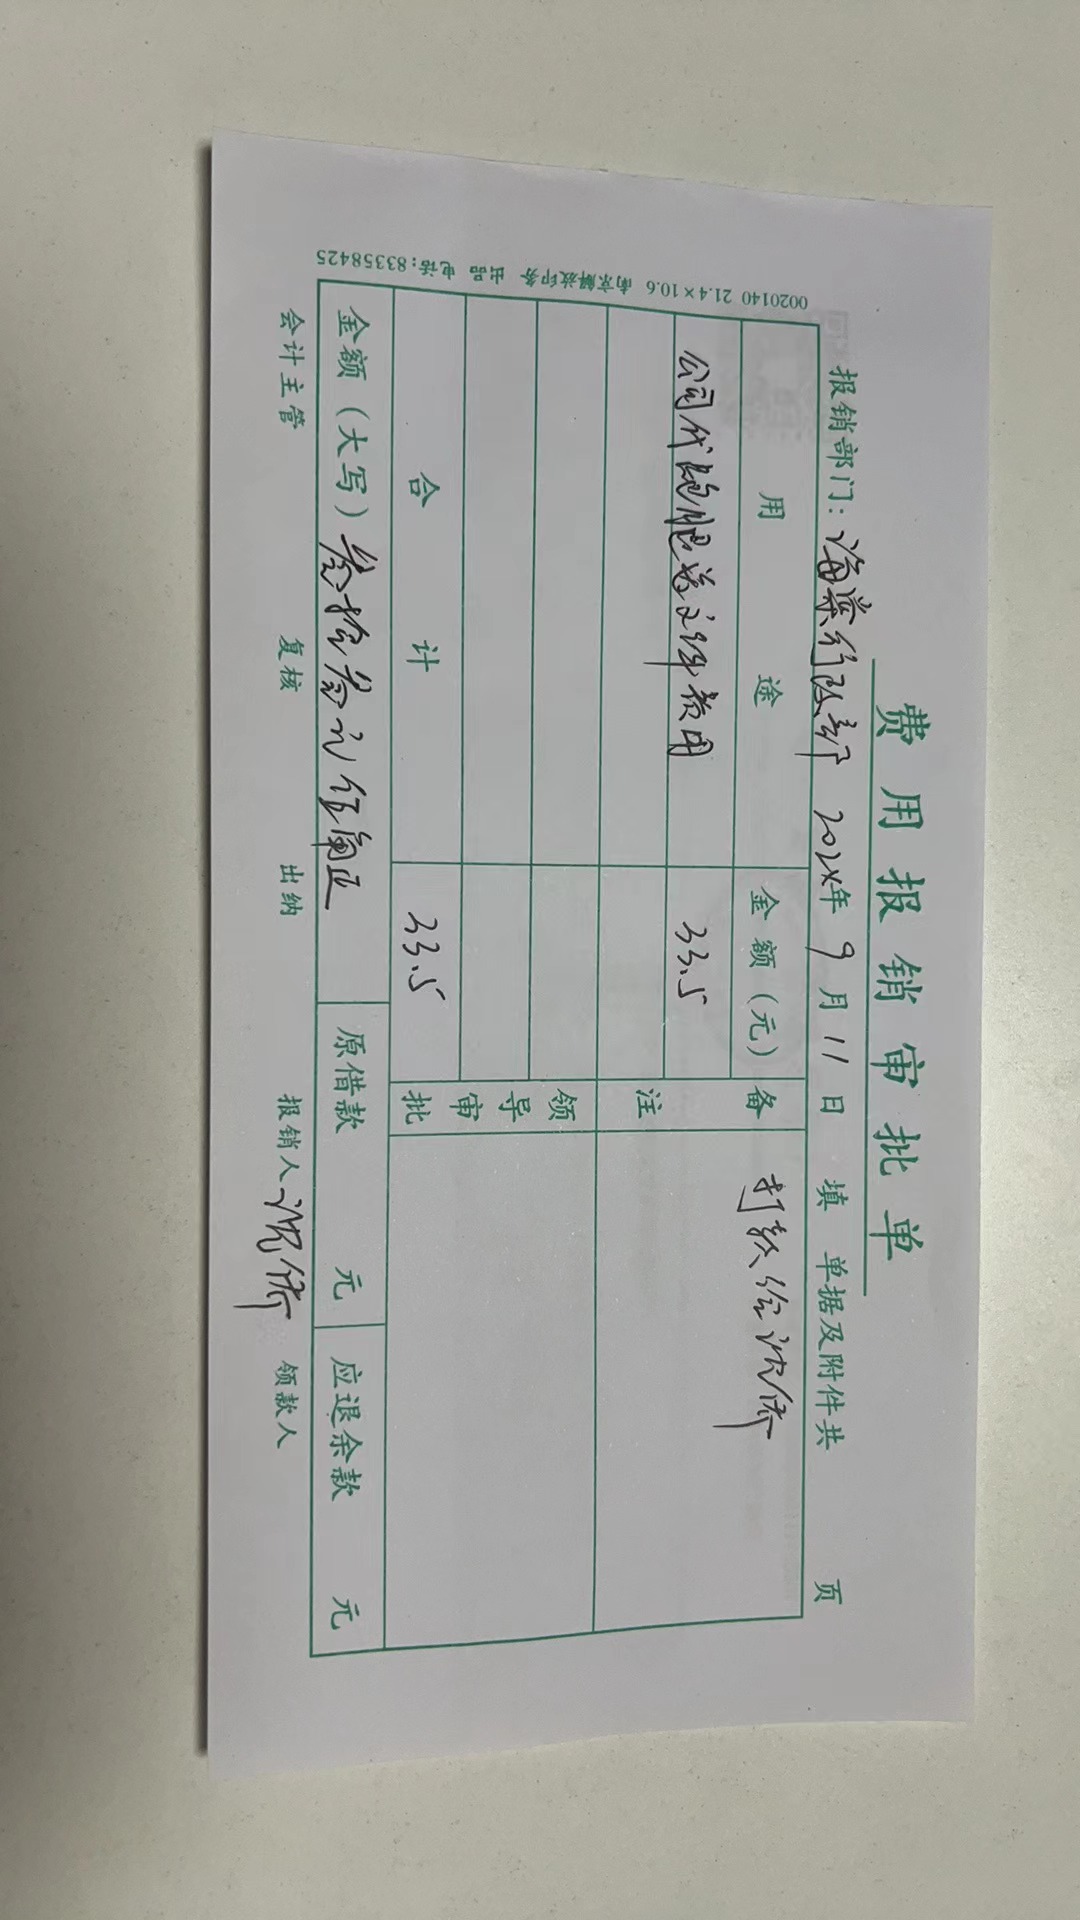 费用报销审批单
报销部门：海棠行政部 2024年9月11日填 单据及附件共 页
用途 金额（元） 备注 打款给沈侨
公司代跑腿送文件费用 33.5
领导审批
合计 33.5
金额（大写）叁拾叁元伍角正 原借款 元 应退余款 元
会计主管 复核 出纳 报销人 沈侨 领款人
0020140 21.4×10.6 南京解放印务 出品 电话:83358425